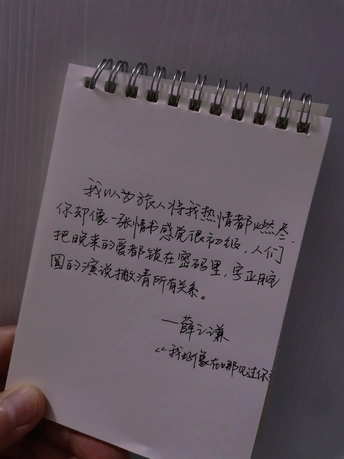 我以为旅人将我热情都燃尽.
你却像一张情书感觉很初级，人们
把晚来的爱都锁在密码里，字正腔
圆的演说撇清所有关系。
—薛之谦
《我好像在哪见过你